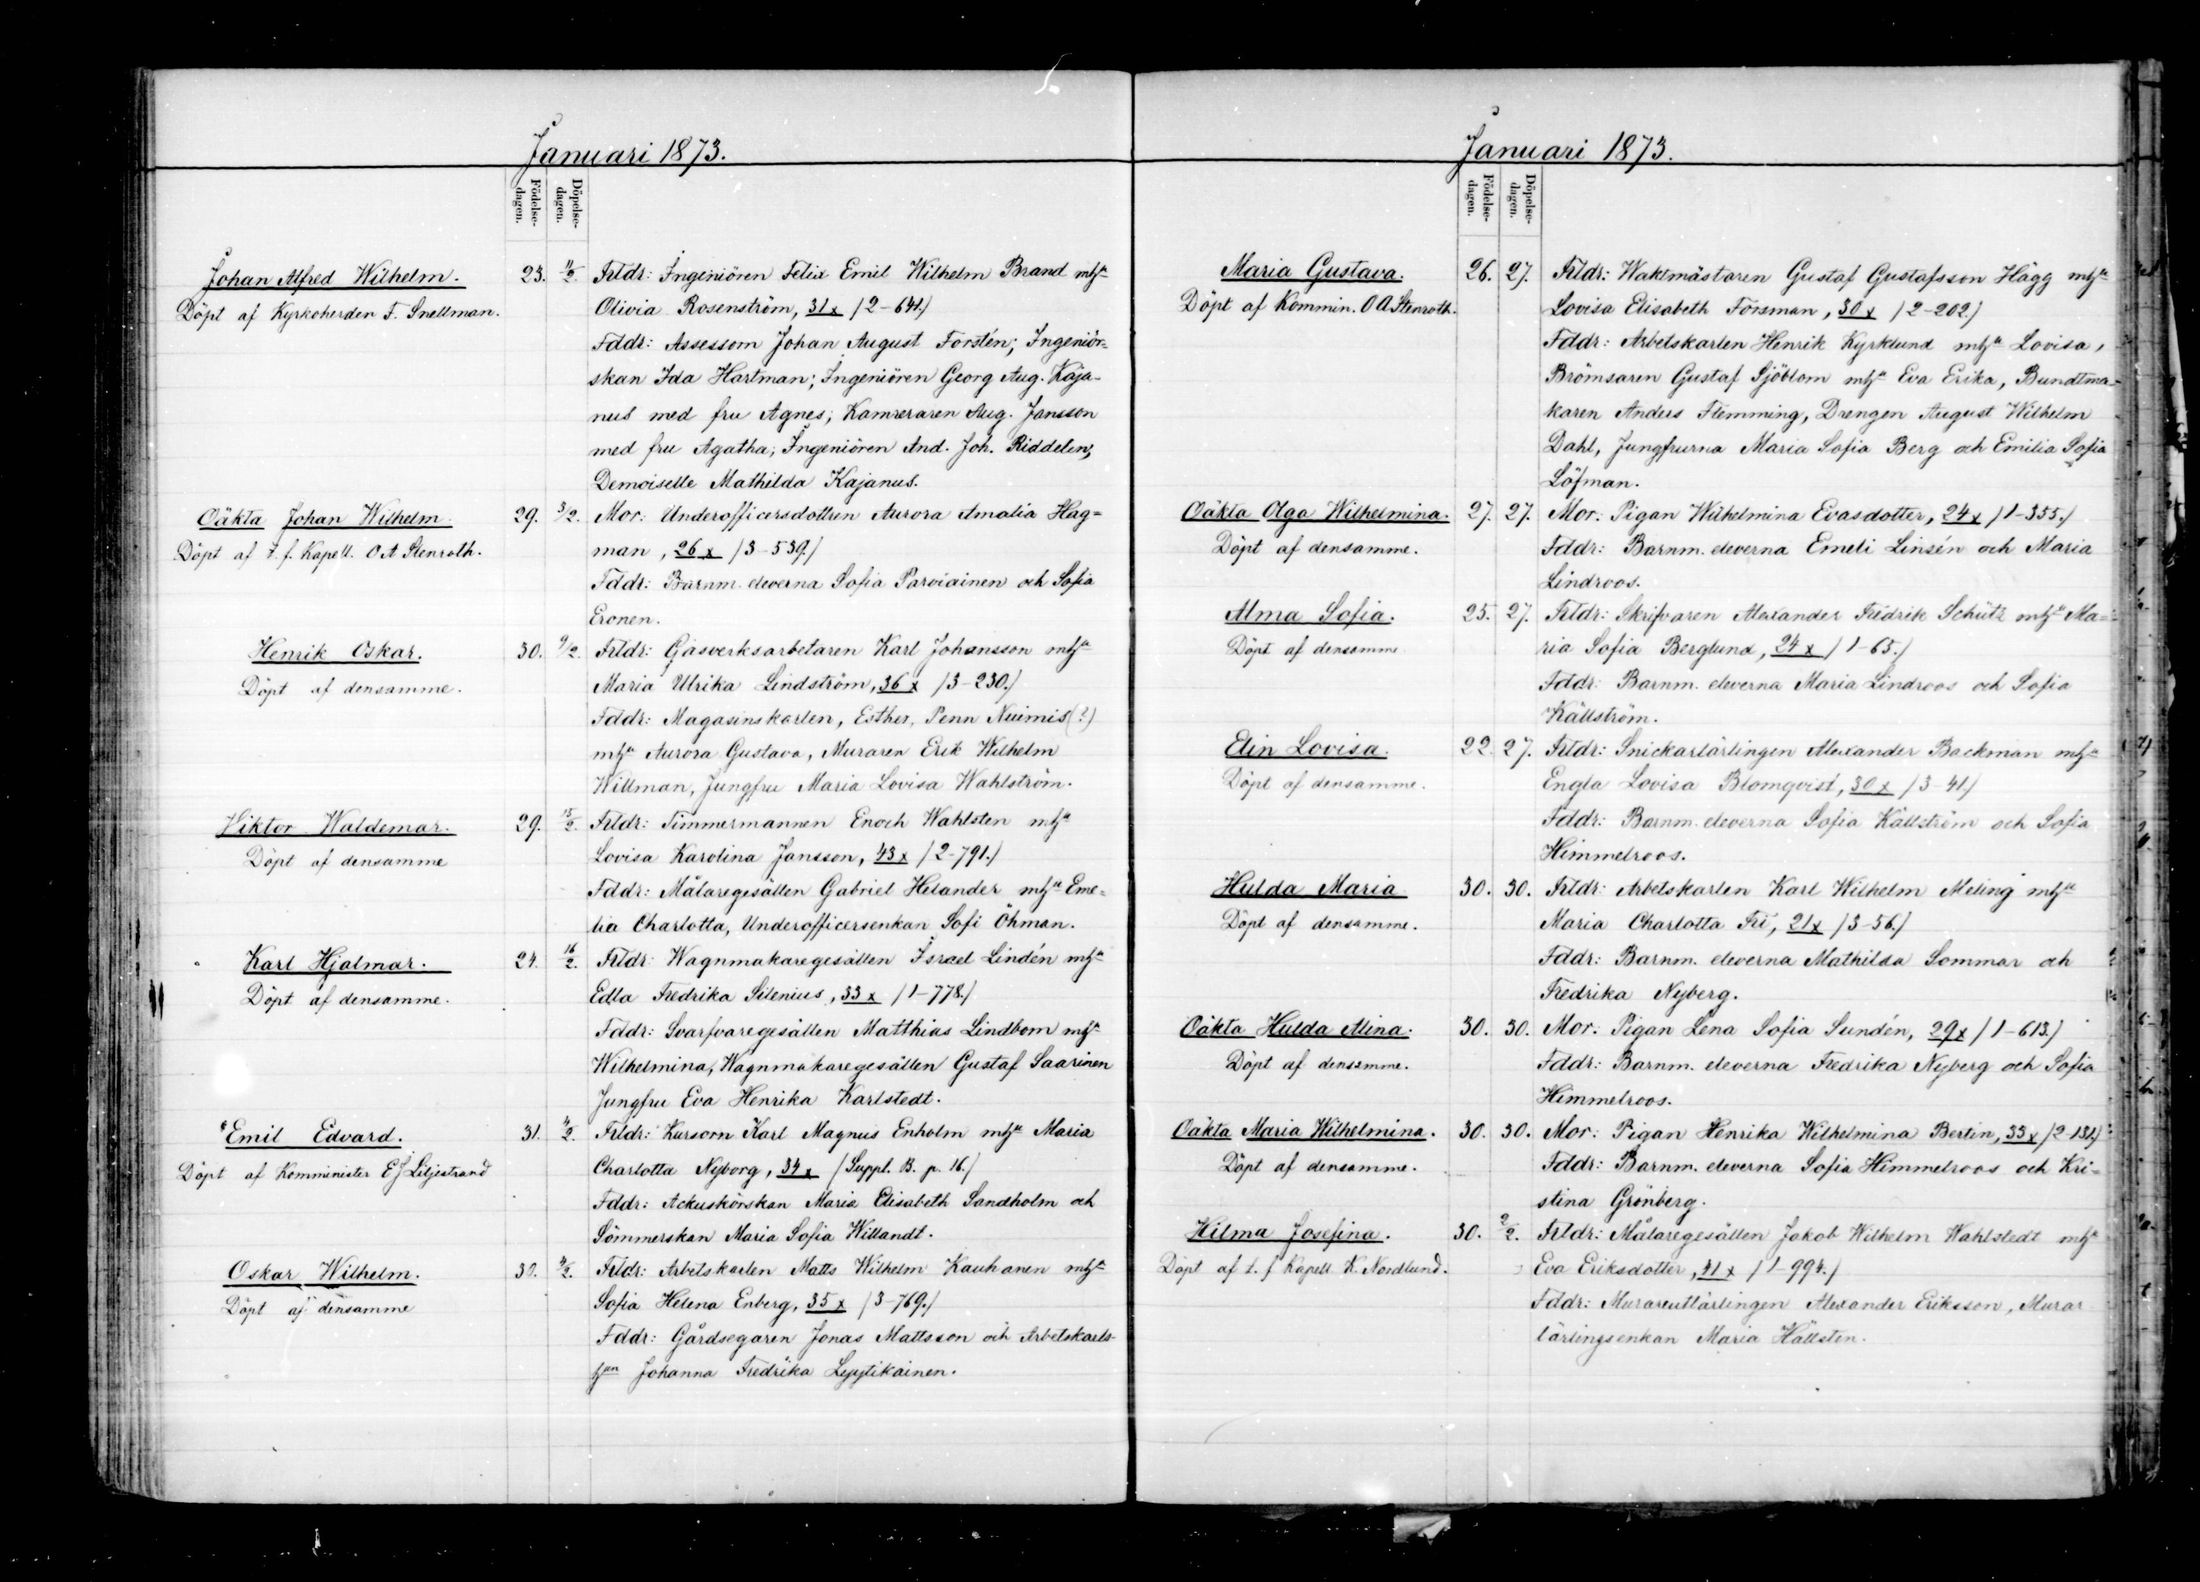 Januari 1873.
Födelse-
dagen.
Döpelse-
dagen.
Johan Alfred Wilhelm.
Döpt af Kyrkoherden F. Snellman.
23. 11/2. Frldr: Ingeniören Felix Emil Wilhelm Brand mhu
Olivia Rosenström, 31x /2-641./
Fddr: Assessorn Johan August Forstén; Ingeniör-
skan Ida Hartman; Ingeniören Georg Aug. Kaja-
nus med fru Agnes; Kamreraren Aug. Jansson
med fru Agatha; Ingeniören And. Joh. Riddelin,
Demoiselle Mathilda Kajanus.
Oäkta Johan Wilhelm
Döpt af t. f. Kapell. O A Stenroth.
29. 3/2. Mor: Underofficersdottren Aurora Amalia Hag=
man, 26x /3-539./
Fddr: Barnm. eleverna Sofia Parviainen och Sofia
Eronen.
Henrik Oskar.
Döpt af densamme.
30. 9/2. Frldr: Gasverksarbetaren Karl Johansson mhu
Maria Ulrika Lindström, 36x /3-230./
Fddr: Magasinskarlen, Esther, Penn Nuimis (?)
mhu Aurora Gustava, Muraren Erik Wilhelm
Willman, Jungfru Maria Lovisa Wahlström.
Viktor Waldemar.
Döpt af densamme
29. 15/2. Frldr: Timmermannen Enoch Wahlsten mhu
Lovisa Karolina Jansson, 43x /2-791./
Fddr: Målaregesällen Gabriel Helander mhu Eme=
lia Charlotta, Underofficersenkan Sofi Öhman.
Karl Hjalmar.
Döpt af densamme.
24. 16/2. Frldr: Wagnmakaregesällen Israel Lindén mhu
Edla Fredrika Silenius, 33x /1-778./
Fddr: Svarfvaregesällen Matthias Lindbom mhu
Wilhelmina, Wagnmakaregesällen Gustaf Saarinen
Jungfru Eva Henrika Karlstedt.
Emil Edvard.
Döpt af Komminister E J Liljestrand
31. Frldr: Kursorn Karl Magnus Enholm mhu Maria
Charlotta Nyborg, 34x /Suppl. B. p. 16./
Fddr: Ackuskörskan Maria Elisabeth Sandholm och
Sömmerskan Maria Sofia Willandt.
Oskar Wilhelm.
Döpt af densamme
30. Frldr: Arbetskarlen Matts Wilhelm Kauhanen mhu
Sofia Helena Enberg, 35x /3-769./
Fddr: Gårdsegaren Jonas Mattsson och Arbetskarls-
hun Johanna Fredrika Lyytikäinen.
Januari 1873.
Födelse-
dagen.
Döpelse-
dagen.
Maria Gustava.
Döpt af Kommin. O A Stenroth.
26. 27. Frldr: Waktmästaren Gustaf Gustafsson Hägg mhu
Lovisa Elisabeth Forsman, 30x /2-202./
Fddr: Arbetskarlen Henrik Kyrklund mhu Lovisa,
Brömsaren Gustaf Sjöblom mhu Eva Erika, Bundtma-
karen Anders Flemming, Drengen August Wilhelm
Dahl, Jungfrurna Maria Sofia Berg och Emilia Sofia
Löfman.
Oäkta Olga Wilhelmina.
Döpt af densamme.
27. 27. Mor: Pigan Wilhelmina Evasdotter, 24x /1-355./
Fddr: Barnm. eleverna Emeli Linsén och Maria
Lindroos.
Alma Sofia.
Döpt af densamme
25. 27. Frldr: Skrifvaren Alexander Fredrik Schütz mhu Ma=
ria Sofia Berglund, 24x /1-65./
Fddr: Barnm. eleverna Maria Lindroos och Sofia
Källström.
Elin Lovisa.
Döpt af densamme.
22. 27. Frldr: Snickarlärlingen Alexander Backman mhu
Engla Lovisa Blomqvist, 30x /3-41./
Fddr: Barnm. eleverna Sofia Källström och Sofia
Himmelroos.
Hulda Maria
Döpt af densamme.
30. 30. Frldr: Arbetskarlen Karl Wilhelm Meling mhu
Maria Charlotta Fri, 21x /3-56./
Fddr: Barnm. eleverna Mathilda Sommar och
Fredrika Nyberg.
Oäkta Hulda Alina.
Döpt af densamme.
30. 30. Mor: Pigan Lena Sofia Sundén, 29x /1-613./
Fddr: Barnm. eleverna Fredrika Nyberg och Sofia
Himmelroos.
Oäkta Maria Wilhelmina.
Döpt af densamme.
30. 30. Mor: Pigan Henrika Wilhelmina Bertin, 33x /2-131./
Fddr: Barnm. eleverna Sofia Himmelroos och Kri=
stina Grönberg.
Hilma Josefina.
Döpt af t. f Kapell. K. Nordlund.
30. 2/2. Frldr: Målaregesällen Jakob Wilhelm Wahlstedt mhu
Eva Eriksdotter, 41x /1-994./
Fddr: Murarelärlingen Alexander Eriksson, Murar
lärlingsenkan Maria Hällsten.